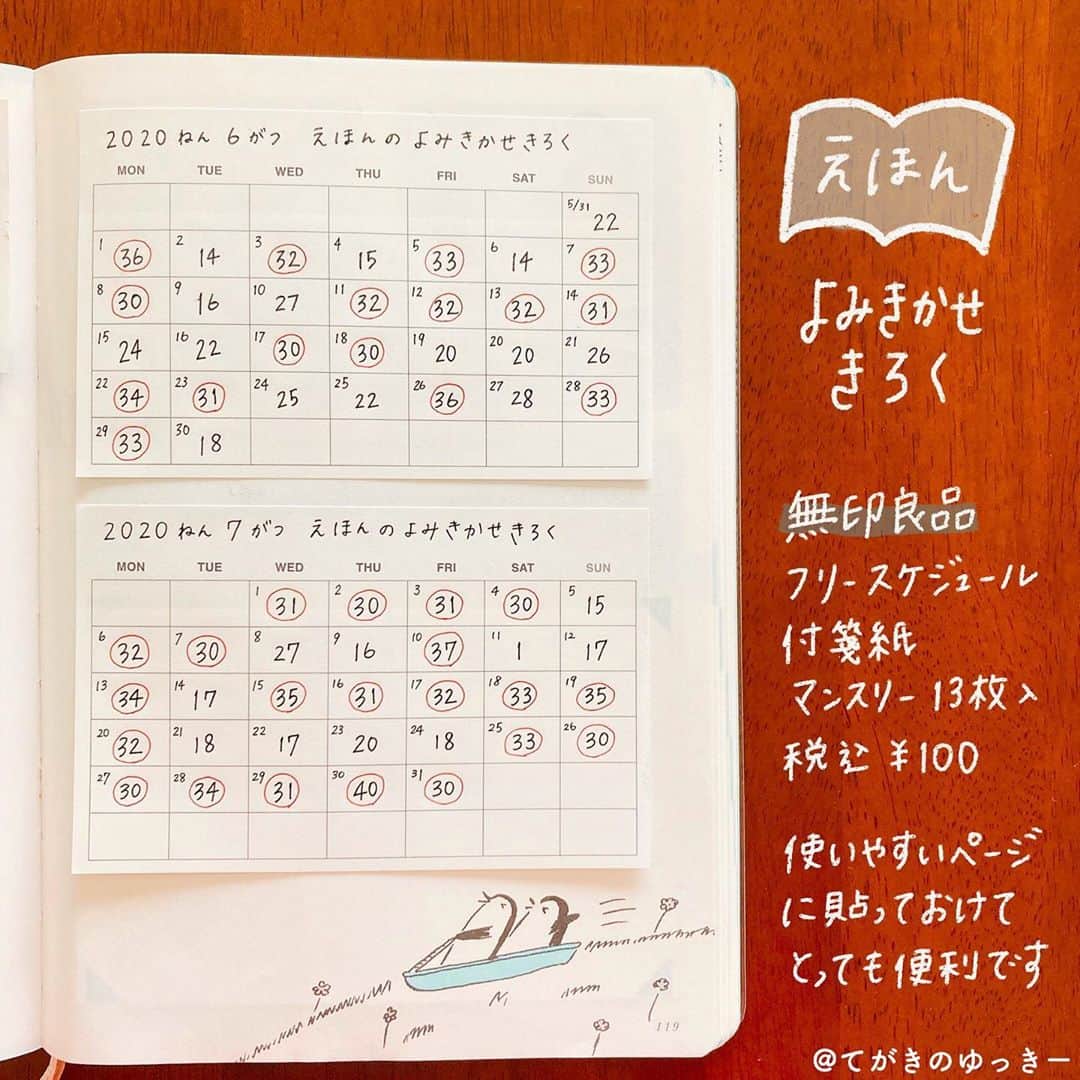 2020 ねん 6 がつ えほんの よみきかせきろく
MON TUE WED THU FRI SAT SUN
5/31 22
1 36 2 14 3 32 4 15 5 33 6 14 7 33
8 30 9 16 10 27 11 32 12 32 13 32 14 31
15 24 16 22 17 30 18 30 19 20 20 20 21 26
22 34 23 31 24 25 25 22 26 36 27 28 28 33
29 33 30 18
2020 ねん 7 がつ えほんの よみきかせきろく
MON TUE WED THU FRI SAT SUN
1 31 2 30 3 31 4 30 5 15
6 32 7 30 8 27 9 16 10 37 11 1 12 17
13 34 14 17 15 35 16 31 17 32 18 33 19 35
20 32 21 18 22 17 23 20 24 18 25 33 26 30
27 30 28 34 29 31 30 40 31 30
119
えほん
よみきかせ
きろく
無印良品
フリースケジュール
付箋紙
マンスリー 13枚入
税込 ¥100
使いやすいページ
に貼っておけて
とっても便利です
@てがきのゆっきー